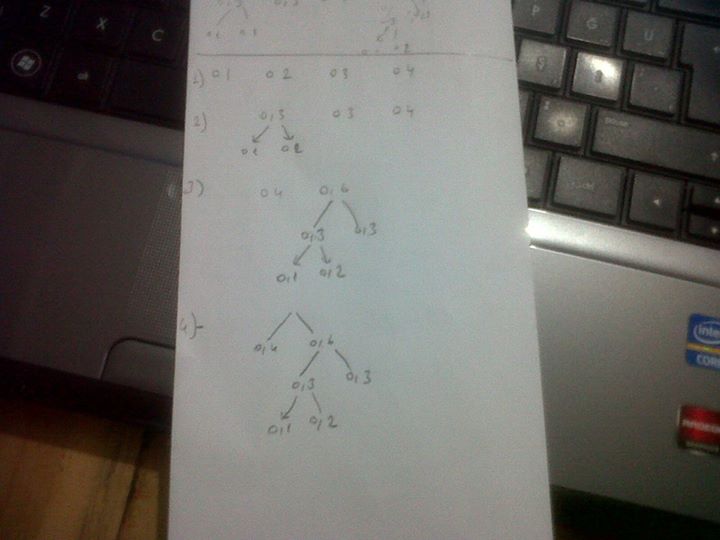 0,3
1) 0 1 0 2 0 3 0 4
2) 0,3 0 3 0 4
0 1 0 2
3) 0 4 0,6
0,3 0,3
0,1 0,2
4)-
0,4 0,6
0,3 0,3
0,1 0,2
Z X C
alt
P Ğ Ü
pause
intel
CORE
RADEON